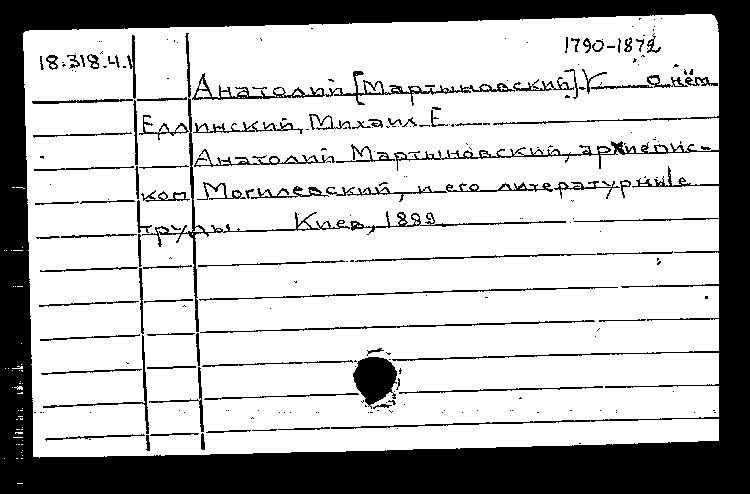 1790-1872
18.318.4.1
Анатолий [Мартыновский] о нём
Едлинский, Михаил Е.
Анатолий Мартыновский, архиепис-
коп Могилевский, и его литературные
труды. Киев, 1889.